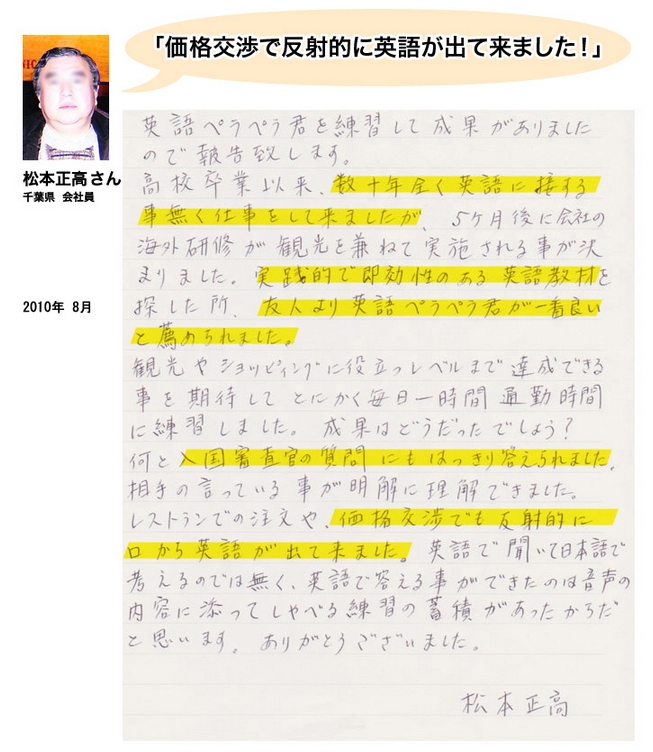 「価格交渉で反射的に英語が出て来ました！」
松本正高さん
千葉県 会社員
2010年 8月
英語ペラペラ君を練習して成果がありました
ので報告致します。
高校卒業以来、数十年全く英語に接する
事無く仕事をして来ましたが、5ケ月後に会社の
海外研修が観光を兼ねて実施される事が決
まりました。実践的で即効性のある英語教材を
探した所、友人より英語ペラペラ君が一番良い
と薦められました。
観光やショッピィングに役立つレベルまで達成できる
事を期待してとにかく毎日一時間通勤時間
に練習しました。成果はどうだったでしょう？
何と入国審査官の質問にもはっきり答えられました。
相手の言っている事が明解に理解できました。
レストランでの注文や、価格交渉でも反射的に
口から英語が出て来ました。英語で聞いて日本語で
考えるのでは無く、英語で答える事ができたのは音声の
内容に添ってしゃべる練習の蓄積があったからだ
と思います。ありがとうございました。
松本正高